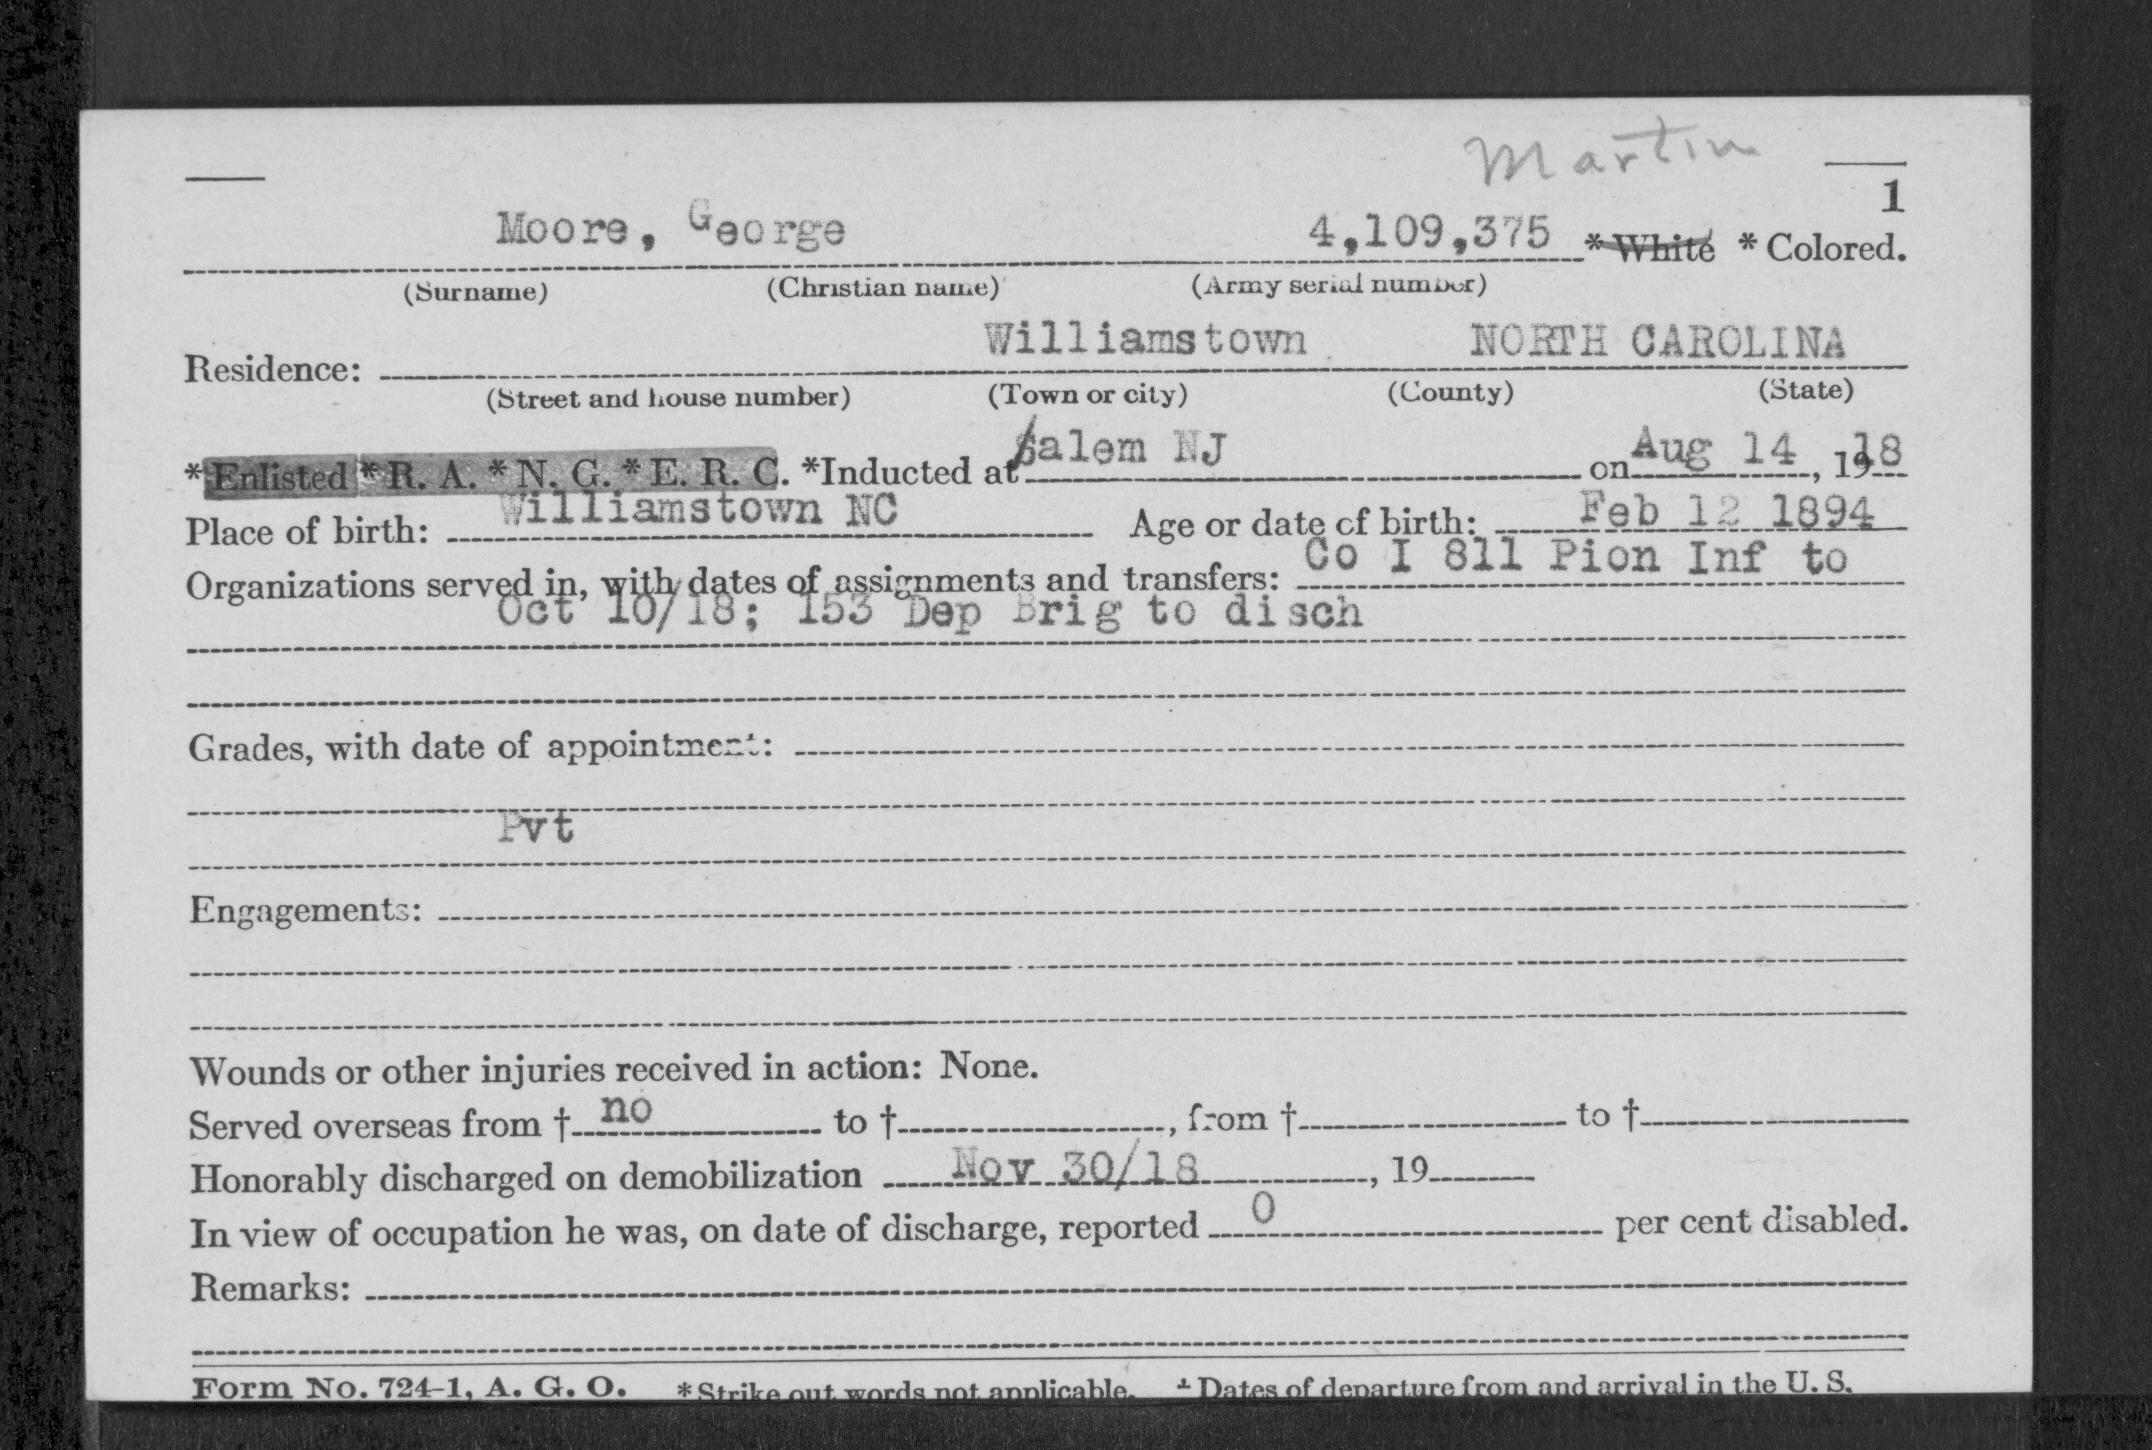 Martin
1
Moore, George 4,109,375 * White * Colored.
(Surname) (Christian name) (Army serial number)
Williamstown NORTH CAROLINA
Residence:
(Street and house number) (Town or city) (County) (State)
* Enlisted * R. A. * N. G. * E. R. C. *Inducted at Salem NJ on Aug 14, 1918
Place of birth: Williamstown NC Age or date of birth: Feb 12 1894
Organizations served in, with dates of assignments and transfers: Co I 811 Pion Inf to
Oct 10/18; 153 Dep Brig to disch
Grades, with date of appointment:
Pvt
Engagements:
Wounds or other injuries received in action: None.
Served overseas from † no to †, from † to †
Honorably discharged on demobilization Nov 30/18, 19
In view of occupation he was, on date of discharge, reported 0 per cent disabled.
Remarks:
Form No. 724-1, A. G. O. *Strike out words not applicable. † Dates of departure from and arrival in the U. S.